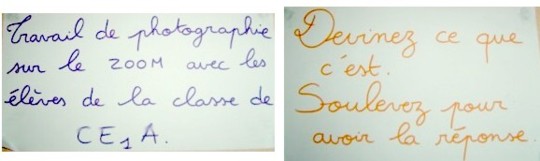 Travail de photographie
sur le ZOOM avec les
élèves de la classe de
CE1A.
Devinez ce que
c'est.
Soulevez pour
avoir la réponse.